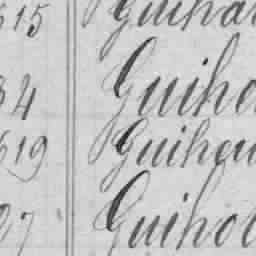 515 Guiha
34 Guiho
619 Guihou
27 Guihol